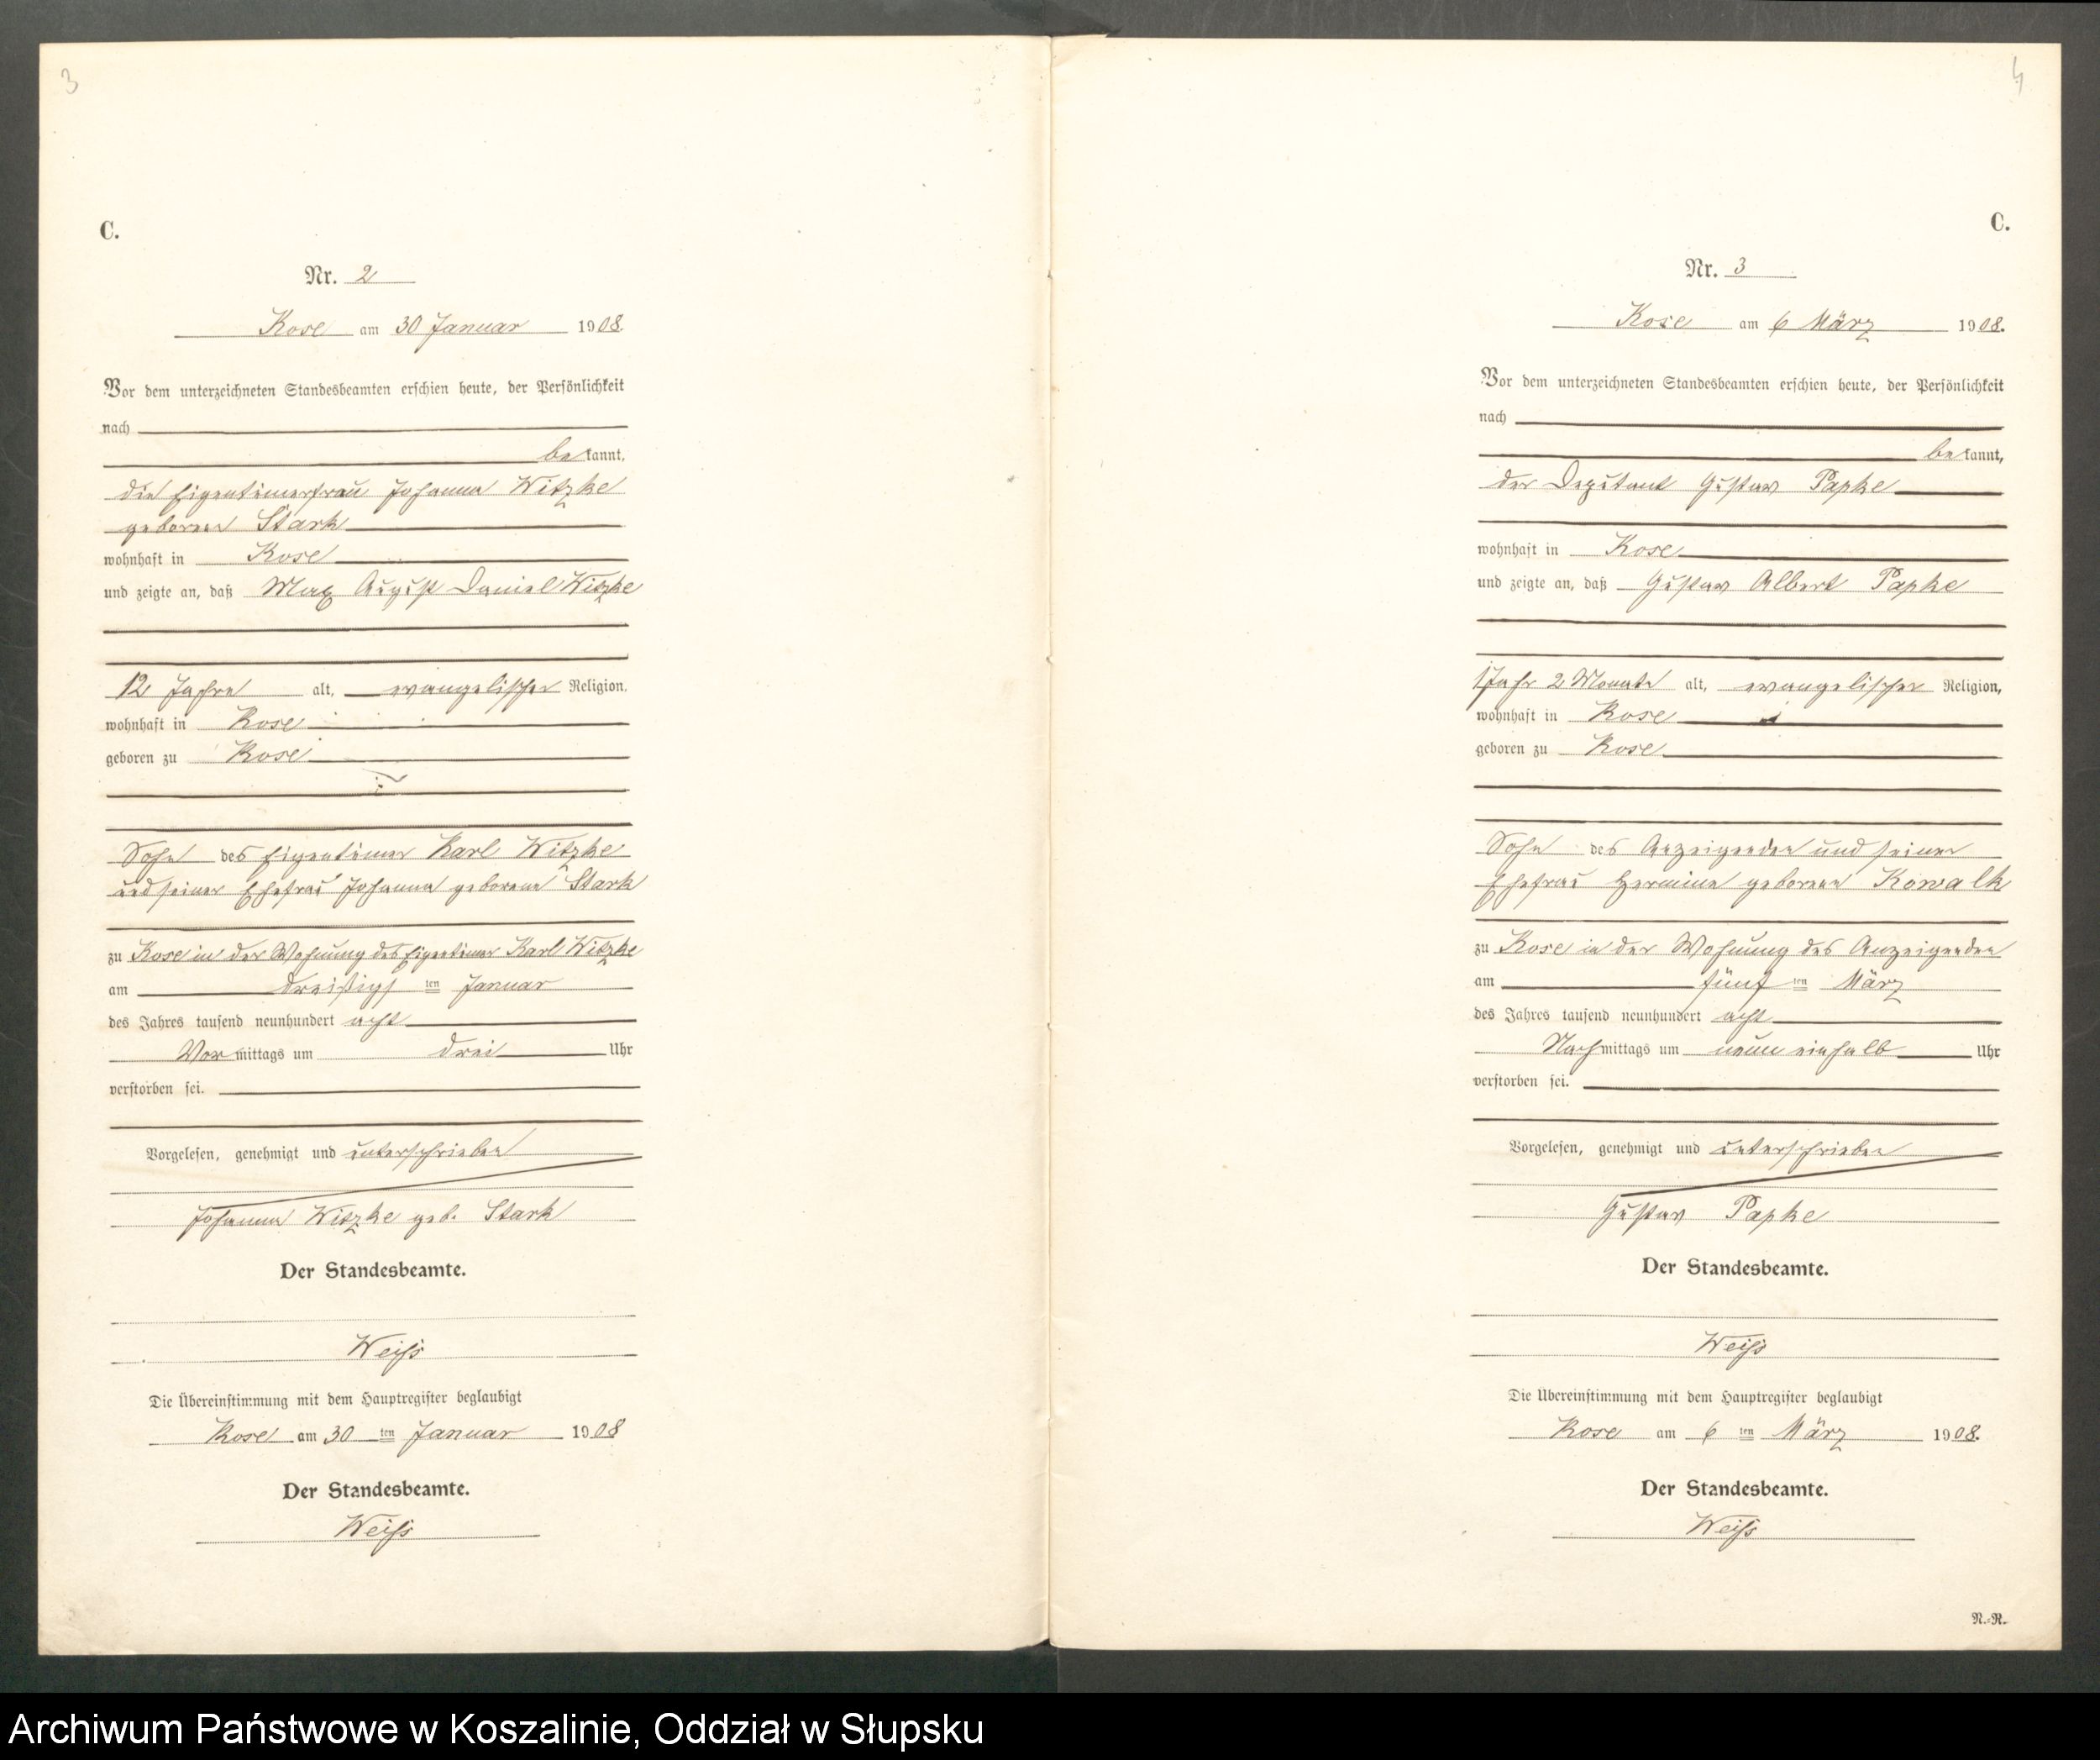 3
C.
Nr. 2
Kose am 30 Januar 1908.
Vor dem unterzeichneten Standesbeamten erschien heute, der Persönlichkeit
nach
bekannt,
die Eigentümerfrau Johanna Witzke
geborene Stark
wohnhaft in Kose
und zeigte an, daß Max August Daniel Witzke
12 Jahre alt, evangelischer Religion,
wohnhaft in Kose
geboren zu Kose
Sohn des Eigentümer Karl Witzke
und seiner Ehefrau Johanna geborene Stark
zu Kose in der Wohnung des Eigentümer Karl Witzke
am dreißigs ten Januar
des Jahres tausend neunhundert acht
Vormittags um drei Uhr
verstorben sei.
Vorgelesen, genehmigt und unterschrieben
Johanna Witzke geb. Stark
Der Standesbeamte.
Weiß
Die Übereinstimmung mit dem Hauptregister beglaubigt
Kose am 30 ten Januar 1908
Der Standesbeamte.
Weiß
4
C.
Nr. 3
Kose am 6 März 1908.
Vor dem unterzeichneten Standesbeamten erschien heute, der Persönlichkeit
nach
bekannt,
der Deputant Gustav Papke
wohnhaft in Kose
und zeigte an, daß Gustav Albert Papke
1 Jahr 2 Monate alt, evangelischer Religion,
wohnhaft in Kose
geboren zu Kose
Sohn des Anzeigenden und seiner
Ehefrau Hermine geborene Kowalk
zu Kose in der Wohnung des Anzeigenden
am fünf ten März
des Jahres tausend neunhundert acht
Nachmittags um neun einhalb Uhr
verstorben sei.
Vorgelesen, genehmigt und unterschrieben
Gustav Papke
Der Standesbeamte.
Weiß
Die Übereinstimmung mit dem Hauptregister beglaubigt
Kose am 6 ten März 1908.
Der Standesbeamte.
Weiß
N.-R.
Archiwum Państwowe w Koszalinie, Oddział w Słupsku